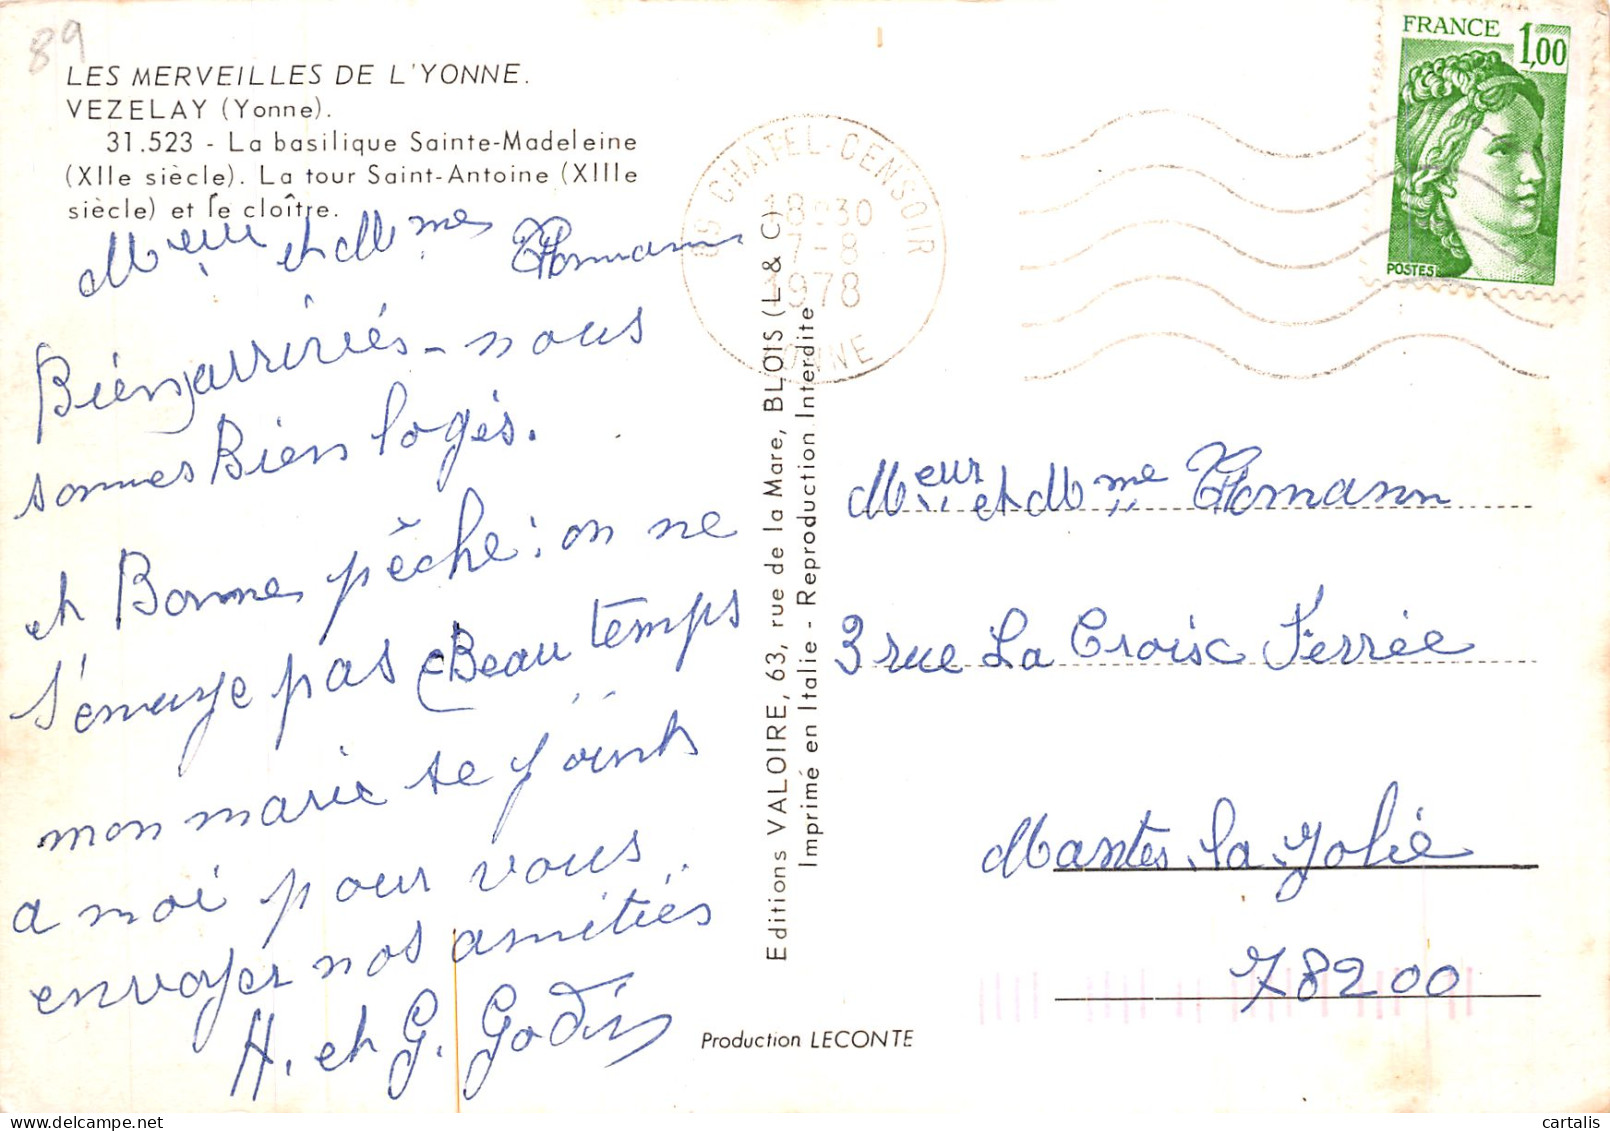 89
LES MERVEILLES DE L'YONNE.
VEZELAY (Yonne).
31.523 - La basilique Sainte-Madeleine
(XIIe siècle). La tour Saint-Antoine (XIIIe
siècle) et le cloître.
Meur et Mmes Homann
Bien arriviés - nous
sommes Bien logés.
et Bonnes pêche : on ne
s'ennuye pas Beau temps
mon marie se joints
a moi pour vous
envoyer nos amitiés
H. et G. Godin
Editions VALOIRE, 63, rue de la Mare, BLOIS (L & C)
Imprimé en Italie - Reproduction Interdite
Production LECONTE
89 CHATEL-CENSOIR
18 30
7-8
1978
YONNE
FRANCE 1,00
POSTES
Meur et Mme Homann
3 rue La Croix Ferrée
Mantes la Jolie
78200
cartalis